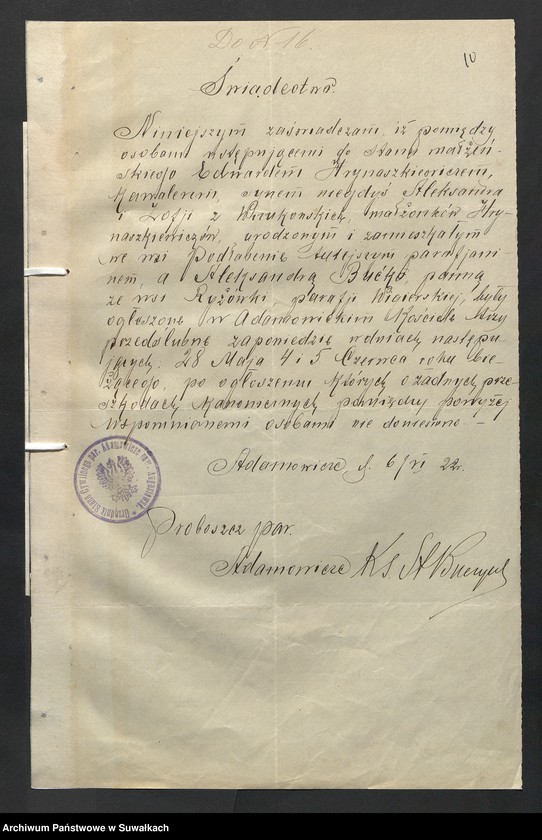 Do N 16.
10
Świadectwo.
Niniejszym zaświadczam, iż pomiędzy
osobami wstępującemi do stanu małżeń-
skiego Edwardem Hrynaszkiewiczem,
kawalerem, synem niegdyś Aleksandra
i Zofji z Wnukowskich, małżonków Hry-
naszkiewiczów, urodzonym i zamieszkałym
we wsi Podłabenie tutejszym parafjani-
nem, a Aleksandrą Bućko panną
ze wsi Ryżówki, parafji były
ogłoszone w Adamowickim Kościele trzy
przedślubne zapowiedzie w dniach następu-
jących: 28 Maja 4 i 5 Czerwca roku bie-
żącego, po ogłoszeniu których o żadnych prze-
szkodach kanonicznych pomiędzy powyżej
wspomnianemi osobami nie doniesiono –
Adamowicze d. 6/VI 22r.
Proboszcz par.
Adamowicze Ks. A
Urzędnik Stanu Cywilnego par. Adamowicze pow. Augustowsk.
Archiwum Państwowe w Suwałkach